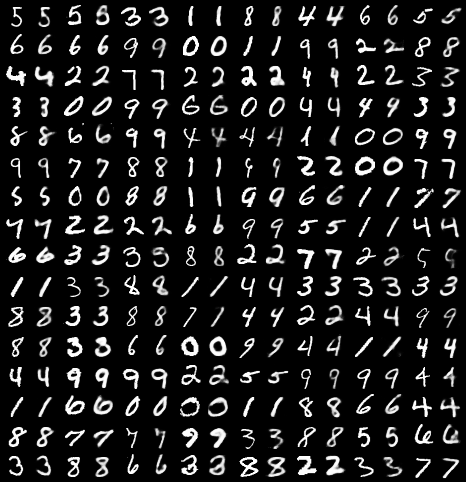 5 5 5 5 3 3 1 1 8 8 4 4 6 6 5 5
6 6 6 6 9 9 0 0 1 1 9 9 2 2 8 8
4 4 2 2 7 7 2 2 2 2 4 4 2 2 3 3
3 3 0 0 9 9 6 6 0 0 4 4 4 9 3 3
8 8 6 6 9 9 4 4 4 4 1 1 0 0 9 9
9 9 7 7 8 8 1 1 9 9 2 2 0 0 7 7
5 5 0 0 8 8 1 1 9 9 6 6 1 1 7 7
7 7 2 2 2 2 6 6 9 9 5 5 1 1 4 4
6 6 3 3 3 5 8 8 2 2 7 7 2 2 5 9
1 1 3 3 8 8 1 1 4 4 3 3 3 3 3 3
8 8 3 3 8 8 7 1 4 4 2 2 4 4 9 9
8 8 3 3 6 6 0 0 9 9 4 4 1 1 4 4
4 4 9 9 9 9 2 2 5 5 9 9 9 9 4 4
1 1 6 6 0 0 0 0 1 1 8 8 6 6 4 4
8 8 7 7 7 7 9 9 3 3 8 8 5 5 6 6
3 3 8 8 6 6 3 3 8 8 2 2 3 3 7 7